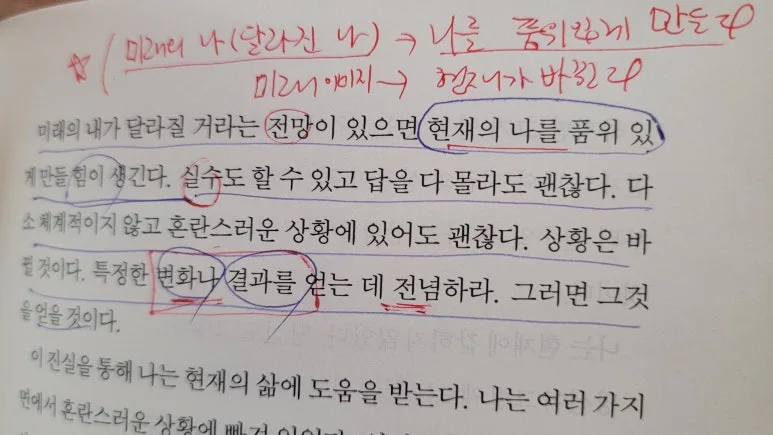 ☆ (미래의 나(달라진 나) → 나를 품위있게 만든다
미래이미지 → 현재가 바뀐다
미래의 내가 달라질 거라는 전망이 있으면 현재의 나를 품위 있
게 만들 힘이 생긴다. 실수도 할 수 있고 답을 다 몰라도 괜찮다. 다
소 체계적이지 않고 혼란스러운 상황에 있어도 괜찮다. 상황은 바
뀔 것이다. 특정한 변화나 결과를 얻는 데 전념하라. 그러면 그것
을 얻을 것이다.
이 진실을 통해 나는 현재의 삶에 도움을 받는다. 나는 여러 가지
면에서 혼란스러운 상황에 빠져 있었다.